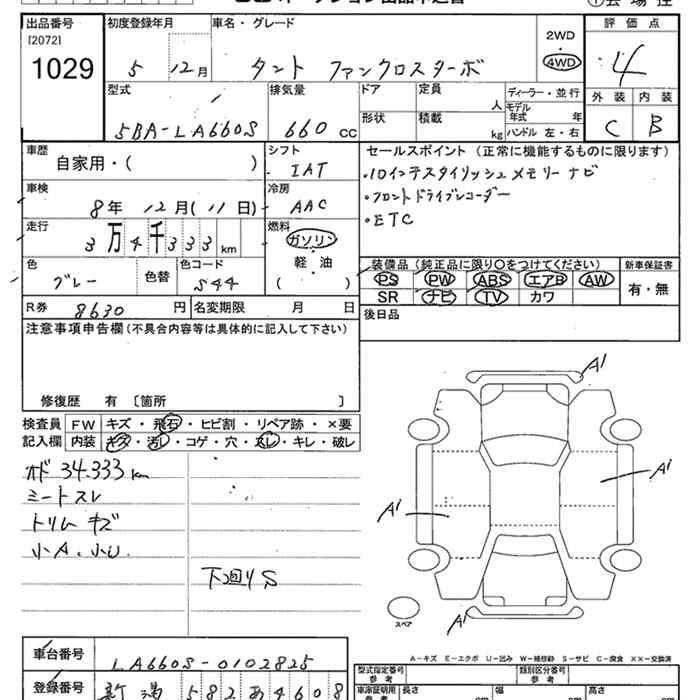 出品番号 初度登録年月 車名・グレード 評価点
[2072] 2WD
1029 5 12月 タント ファンクロスターボ ・ 4
4WD
型式 排気量 ドア 定員 人 ディーラー・並行 外装 内装
モデル年式 年
5BA-LA660S 660 cc 形状 積載 kg ハンドル 左・右 C B
車歴 シフト セールスポイント(正常に機能するものに限ります)
自家用・( ) IAT ・10インチスタイリッシュメモリーナビ
車検 冷房 ・フロントドライブレコーダー
8年 12月(11日) AAC ・ETC
走行 燃料
3万4千333km ガソリン
軽・油
( )
色 色替 色コード 装備品(純正品に限り○をつけてください) 新車保証書
グレー S44 PS PW ABS エアB AW 有・無
SR ナビ TV カワ
R券 8630 円 名変期限 月 日 後日品
注意事項申告欄(不具合内容等は具体的に記入して下さい)
修復歴 有 〔箇所 〕
検査員 FW キズ・飛石・ヒビ割・リペア跡・×要
記入欄 内装 キズ・汚レ・コゲ・穴・スレ・キレ・破レ
オド 34.333km
シートスレ
トリムキズ
小A、小U
下廻りS
A1
A1
A1
A1
スペア
A-キズ E-エクボ U-凹み W-補修跡 S-サビ C-腐食 XX-交換済
車台番号 LA660S-0102825
型式指定番号 参考 類別区分番号 参考
登録番号 新潟 582あ4608
車庫証明用 参考 長さ cm 幅 cm 高さ cm